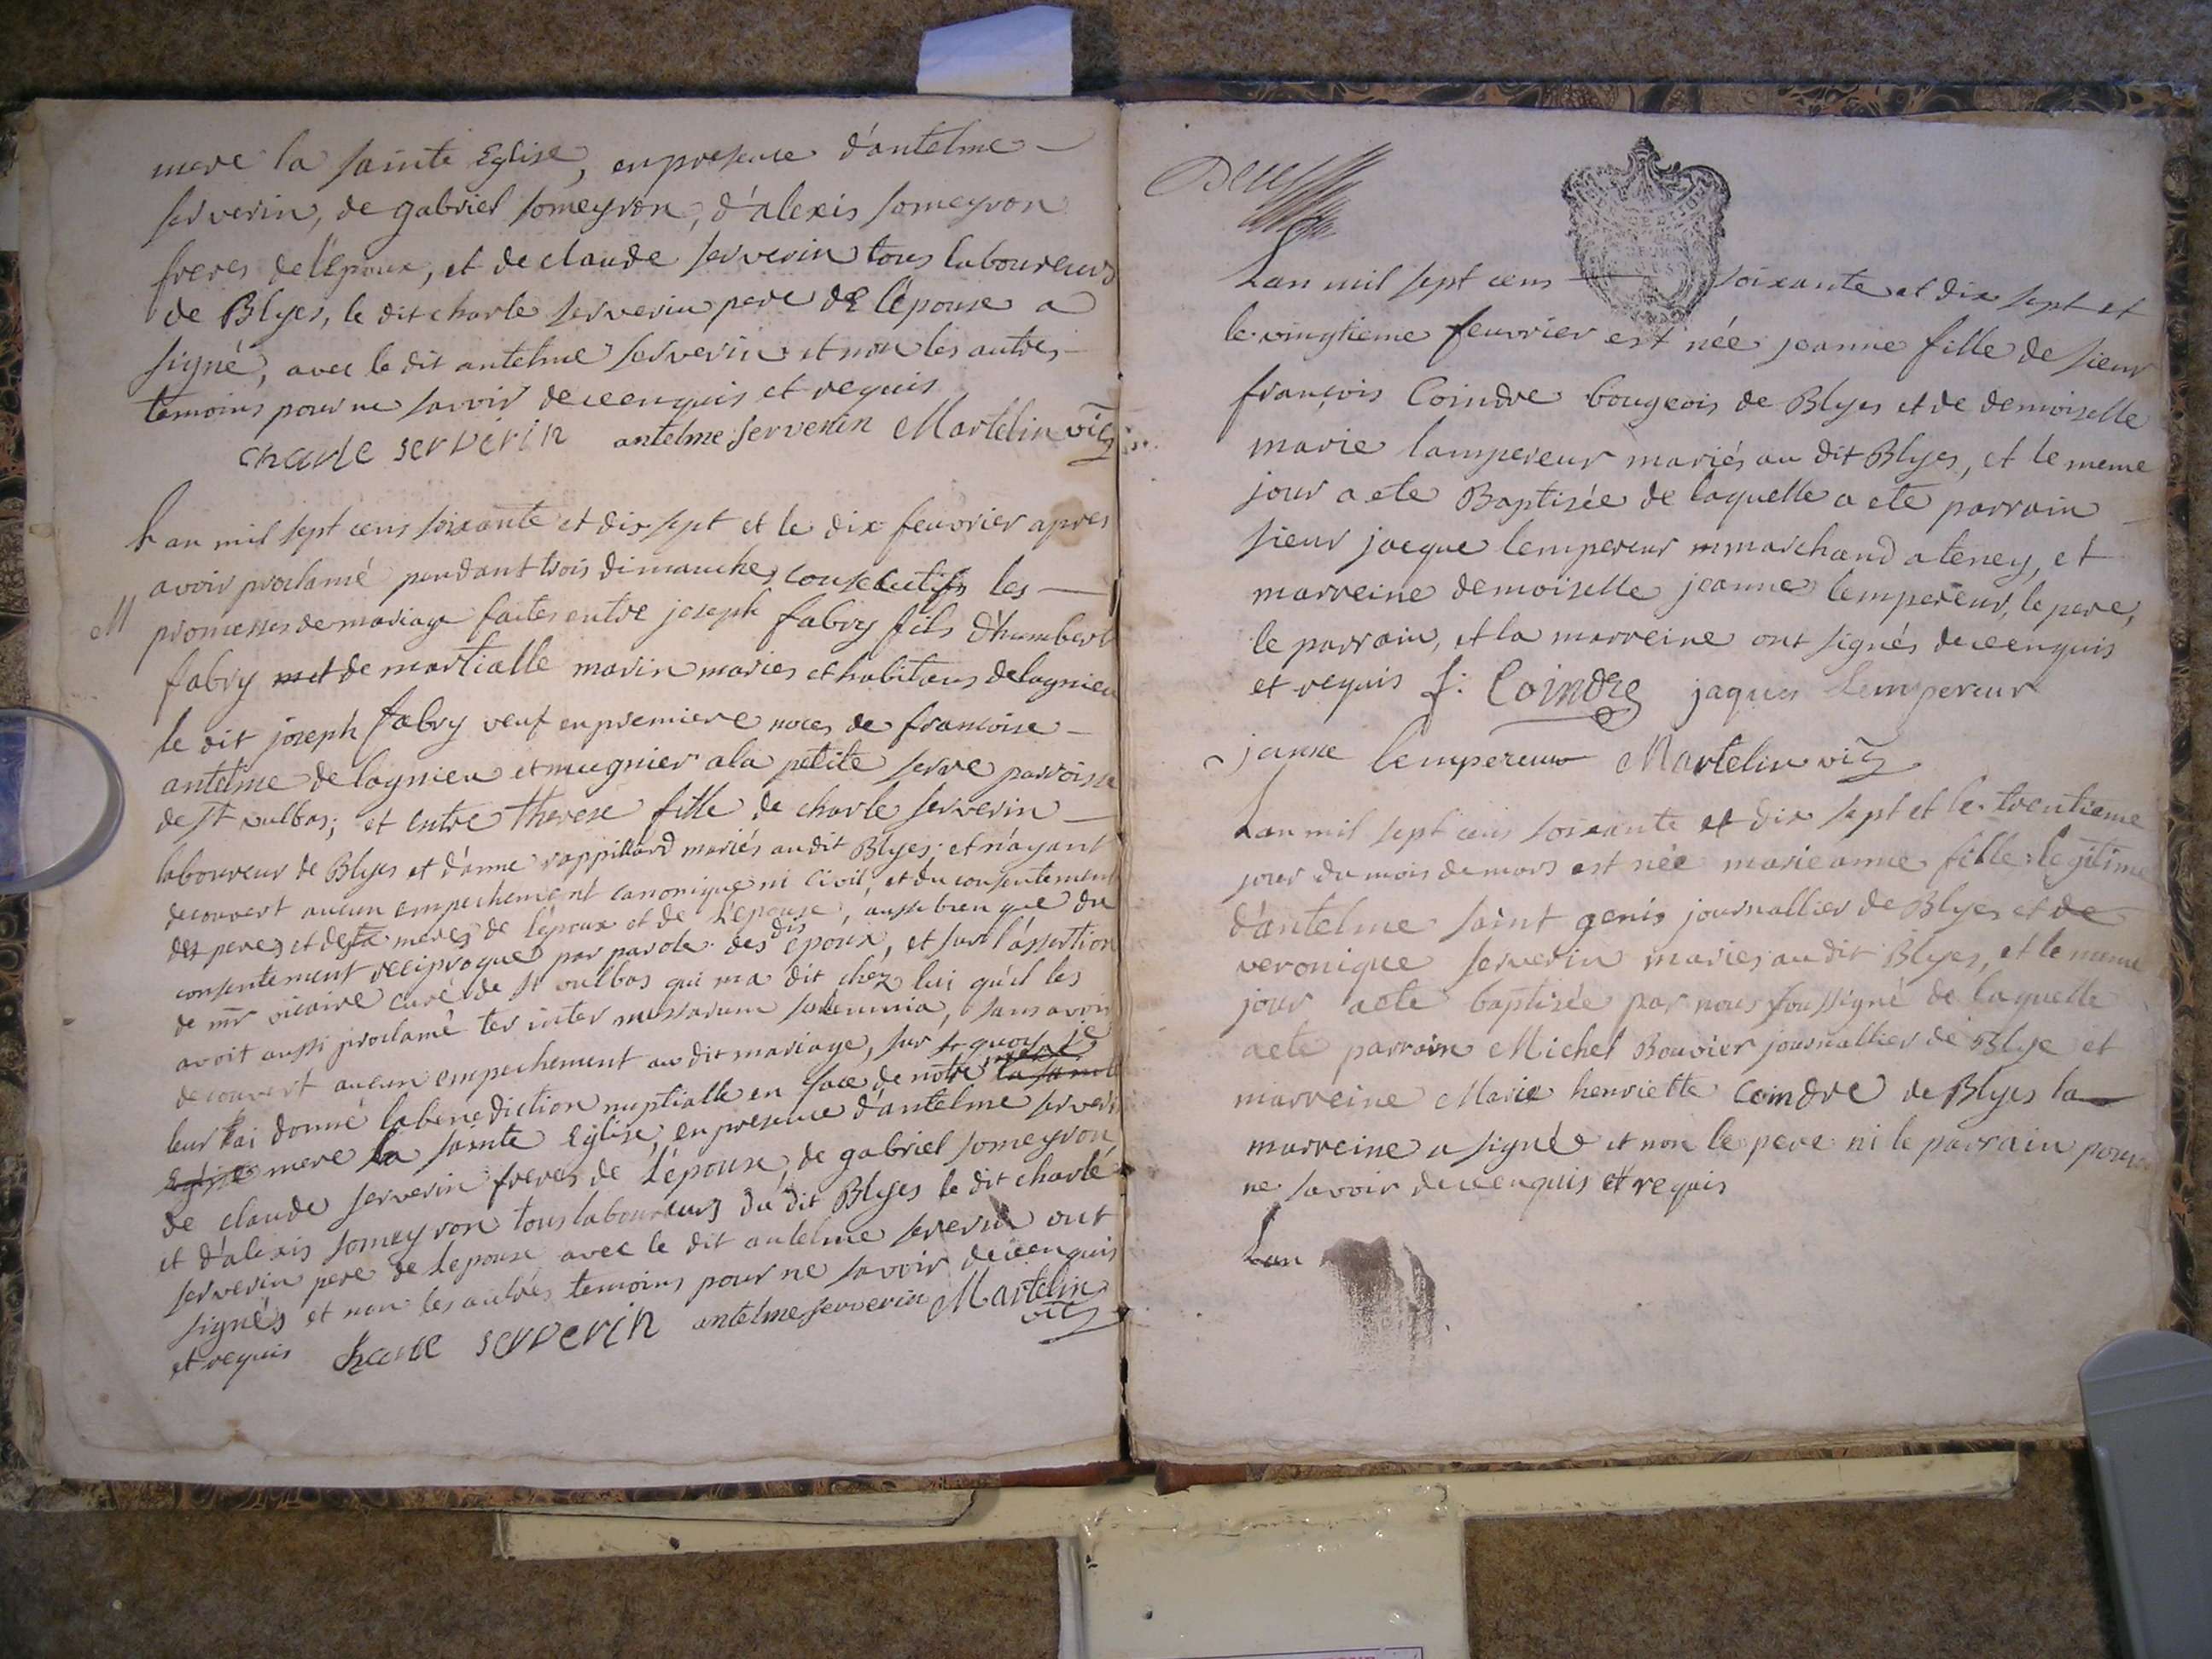 mere la sainte Eglise, en presence d'antelme
serverin, de gabriel someyron, d'alexis someyron
freres de l'epoux, et de claude serverin tous laboureurs
de Blyes, le dit charle serverin pere de l'epouse a
signé, avec le dit antelme serverin et non les autres
temoins pour ne savoir de ce enquis et requis
charle serverin antelme serverin Martelin vic
Lan mil sept cens soixante et dix sept et le dix feuvrier apres
avoir proclamé pendant trois dimanches consecutifs les
M promesses de mariage faites entre joseph fabry fils d'humbert
fabry et de martialle marin maries et habitans de lagnieu
le dit joseph fabry veuf en premiere noces de francoise
antelme de lagnieu et mugnier a la petite serve parroisse
de st vulbas; et entre therese fille de charle serverin
laboureur de Blyes et d'anne rappillard mariés au dit Blyes; et n'ayant
decouvert aucun empechement canonique ni civil, et du consentement
des peres et des meres de l'epoux et de l'epouse, aussi bien que du
consentement reciproque par parole des dis epoux, et sur l'assertion
de mr vicaire curé de st vulbas qui ma dit chez lui qu'il les
avoit aussi proclamé ter inter missarum solemnia, sans avoir
decouvert aucun empechement au dit mariage, sur quoy je
leur ai donné la benediction nuptialle en face de notre la sainte
Eglise mere la sainte Eglise, en presence d'antelme serverin
de claude serverin freres de l'epouse, de gabriel someyron
et d'alexis someyron tous laboureurs du dit Blyes le dit charle
serverin pere de lepouse avec le dit antelme serverin ont
signés et non les autres temoins pour ne savoir de ce enquis
et requis charle serverin antelme serverin Martelin
vic
Deux
Lan mil sept cens soixante et dix sept et
le vingtieme feuvrier est née jeanne fille de sieur
françois Coindre bougeois de Blyes et de demoiselle
marie lampereur mariés au dit Blyes, et le meme
jour a ete Baptisée de laquelle a ete parrain
sieur jacque lempereur mmarchand a teney, et
marreine demoiselle jeanne lempereur, le pere,
le parrain, et la marreine ont signés de ce enquis
et requis f: Coindre jaques Lempereur
janne lempereur Martelin vic
Lan mil sept cens soixante et dix sept et le trentieme
jour du mois de mars est née marie anne fille legitime
d'antelme saint genis journallier de Blyes et de
veronique serverin maries au dit Blyes, et le meme
jour a ete baptisée par nous soussigné de laquelle
a ete parrain Michel Bouvier journallier de Blye et
marreine Marie henriette Coindre de Blyes la
marreine a signée et non le pere ni le parrain pour
ne savoir de ce enquis et requis
Lan